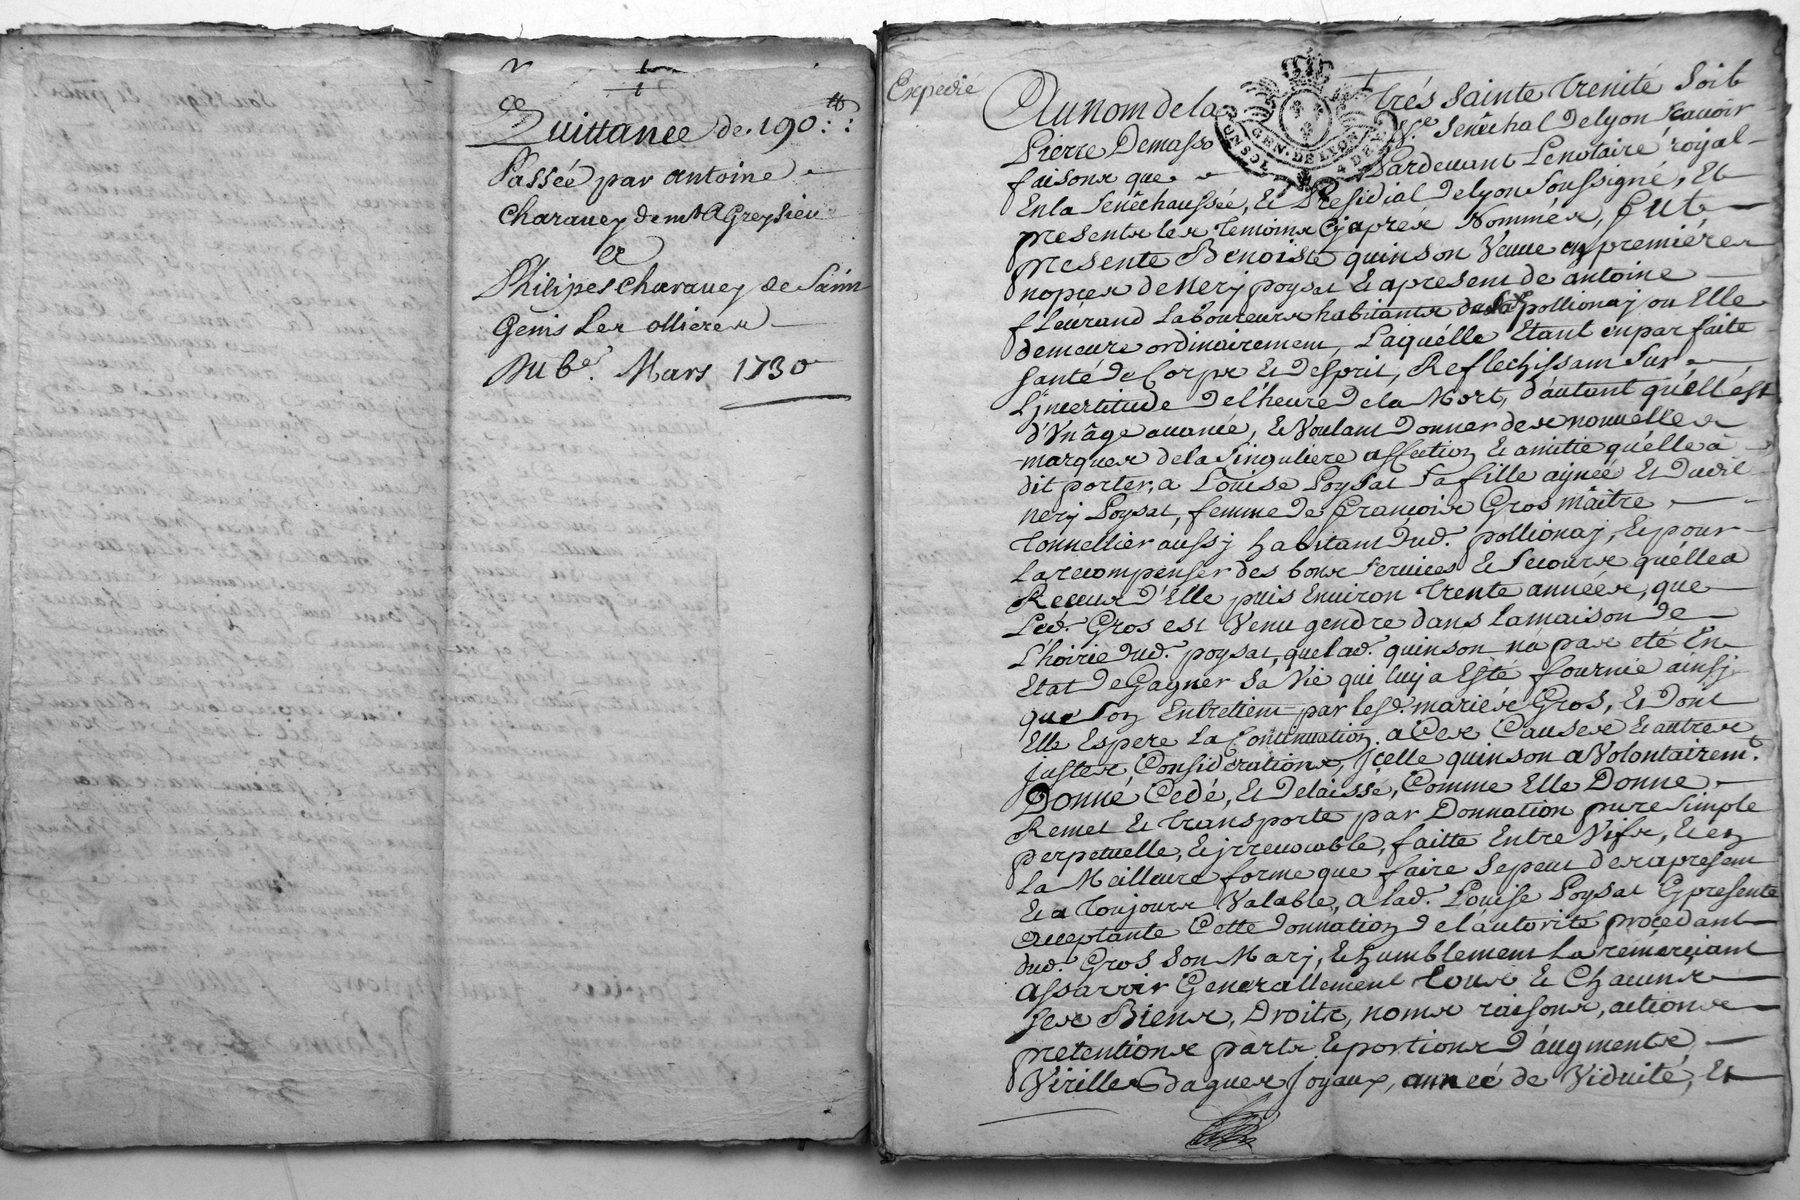 Quittance de 190 ₶
Passée par antoine
Charauey de mt. Greysieu
et
Philipes charauey de Saint
Genis Les ollieres
Du 6e. Mars 1730
Expedié
Au nom de la trés sainte trenité soit
Pierre Demasso Senéchal de lyon scauoir
faisons que Pardeuant Le notaire royal
En la Senêchaussée, & Présidial de lyon soussigné, Et
presents les temoins Cyapres Nommés, fut
presente Benoiste quinson Veuue en premiéres
nopces de Nerj poysat & apresent de antoine
fleurand Laboureurs habitants de pollionaj ou Elle
demeure ordinairement, Laquélle Etant en parfaite
santé de Corps & desprit, Reflechissant sur
L'jncertitude de l'heure de la Mort, d'autant qu'éll'ést
d'Vn âge auancé, & Voulant donner des nouuelles
marques de la singuliere affection & amitié qu'elle à
dit porter, a Loüise Poysat sa fille aynée & dudit
nerj Poysat, femme de françois Gros maître
tonnellier aussj habitant dud. pollionaj, & pour
La recompenser des bons seruices & secours qu'élle a
Receus d'Elle puis Enuiron trente années, que
Led. Gros est Venu gendre dans la maison de
L'hoirie dud. poysat, que lad. quinson n'a pas eté En
Etat de Gagner sa Vie qui luy a Esté fournie ainsj
que son Entretient par lesd. mariés Gros, & dont
Elle Espere La Continuation, a Ces Causes & autres
justes Considerations, jcelle quinson a Volontairemt.
Donné Cedé, & delaissé, Comme Elle Donne
Remet & transporte par Donnation pure simple
perpetuelle, & jrreuocable, faitte Entre Vifs, & en
La Meilleure forme que faire se peut des apresent
& a toujours Valable, a lad. Loüise Poysat Cy presente
acceptante Cette donnation de l'autorité procedant
dud. Gros son Marj, & humblement La remerciant
assavoir Generallement tous & Chacuns
ses Biens, Droits, noms raisons, actions
pretentions parts & portions d'augments
Virilles Bagues Joyaux, année de Viduité, Et